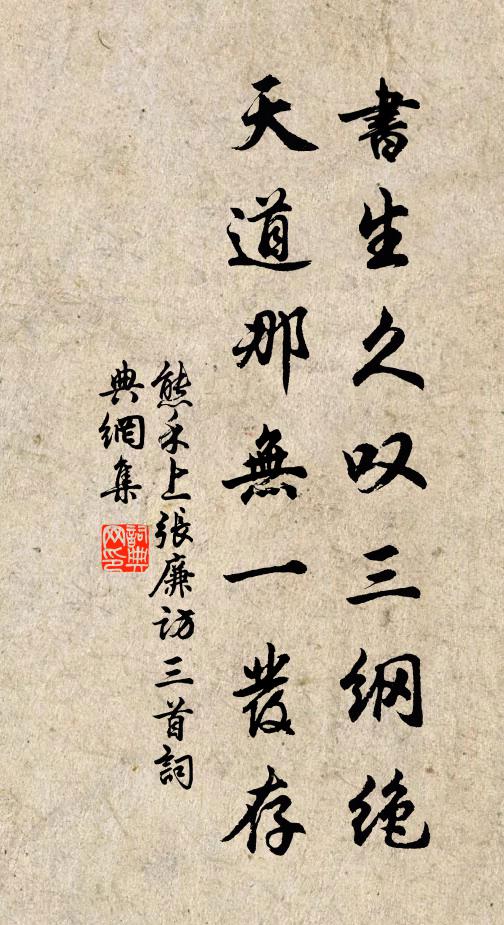 書生久叹三纲绝
天道那無一發存
熊禾上張廉访三首詞
典網集
詞典
网印